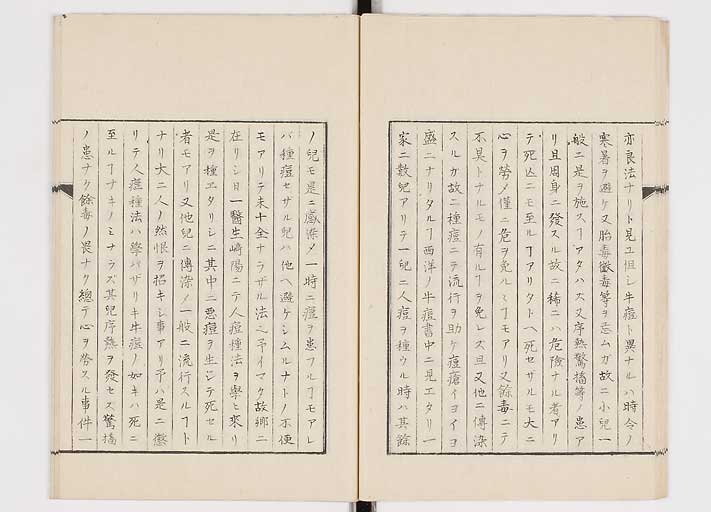 亦良法ナリト見ユ但シ牛痘ト異ナルハ時令ノ
寒暑ヲ避ケ又胎毒黴毒等ヲ忌ムガ故ニ小兒一
般ニ是ヲ施スヿアタハズ又序熱驚搐等ノ患ア
リ且周身ニ發スル故ニ稀ニハ危險ナル者アリ
テ死亡ニモ至ルヿアリタトヘ死セザルモ大ニ
心ヲ勞メ僅ニ危ヲ免ルヽヿモアリ又餘毒ニテ
不具トナルモノ有ルヿヲ免レズ且又他ニ傳染
スルガ故ニ種痘ニテ流行ヲ助ケ痘瘡イヨイヨ
盛ニナリタルヿ西洋ノ牛痘書中ニ見エタリ一
家ニ數兒アリテ一兒ニ人痘ヲ種ウル時ハ其餘
ノ兒モ是ニ感染メ一時ニ痘ヲ患フルヿモアレ
バ種痘セザル兒ハ他ヘ避ケシムルナトノ不便
モアリテ未十全ナラザル法也予イマタ故鄕ニ
在リシ日一醫生崎陽ニテ人痘種法ヲ學ヒ來リ
是ヲ種エタリシニ其中ニ惡痘ヲ生ジテ死セル
者モアリ又他兒ニ傳染メ一般ニ流行スルヿト
ナリ大ニ人ノ怨恨ヲ招キシ事アリ予ハ是ニ懲
リテ人痘種法ハ學バザリキ牛痘ノ如キハ死ニ
至ルヿナキノミナラズ其兒序熱ヲ發セズ驚搐
ノ患ナク餘毒ノ畏ナク總テ心ヲ勞スル事件一